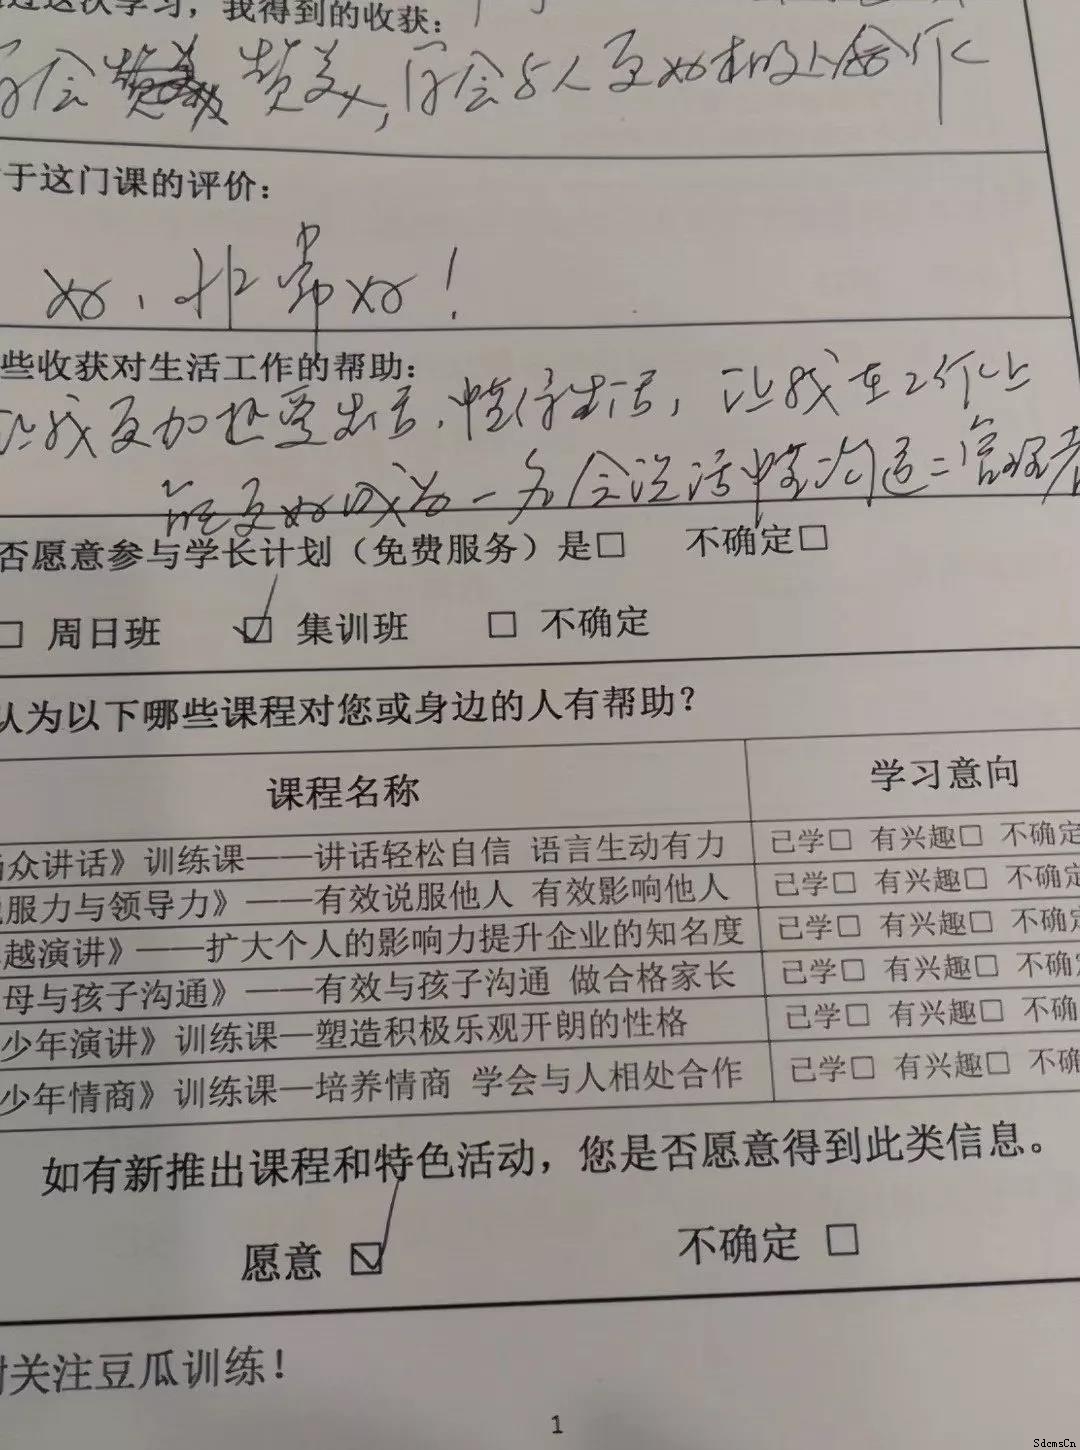 过这次学习，我得到的收获：
学会赞美，学会与人更好相处合作
于这门课的评价：
好、非常好！
些收获对生活工作的帮助：
让我更加热爱生活、懂得生活，让我在工作上
能更好成为一名会说话懂沟通的管理者
否愿意参与学长计划（免费服务）是□ 不确定□
□ 周日班 ☑ 集训班 □ 不确定
认为以下哪些课程对您或身边的人有帮助？
课程名称 学习意向
众讲话》训练课——讲话轻松自信 语言生动有力 已学□ 有兴趣□ 不确定
服力与领导力》——有效说服他人 有效影响他人 已学□ 有兴趣□ 不确定
越演讲》——扩大个人的影响力提升企业的知名度 已学□ 有兴趣□ 不确定
母与孩子沟通》——有效与孩子沟通 做合格家长 已学□ 有兴趣□ 不确定
少年演讲》训练课—塑造积极乐观开朗的性格 已学□ 有兴趣□ 不确
少年情商》训练课—培养情商 学会与人相处合作 已学□ 有兴趣□ 不确
如有新推出课程和特色活动，您是否愿意得到此类信息。
愿意 ☑ 不确定 □
谢关注豆瓜训练！
1
SdcmsCn